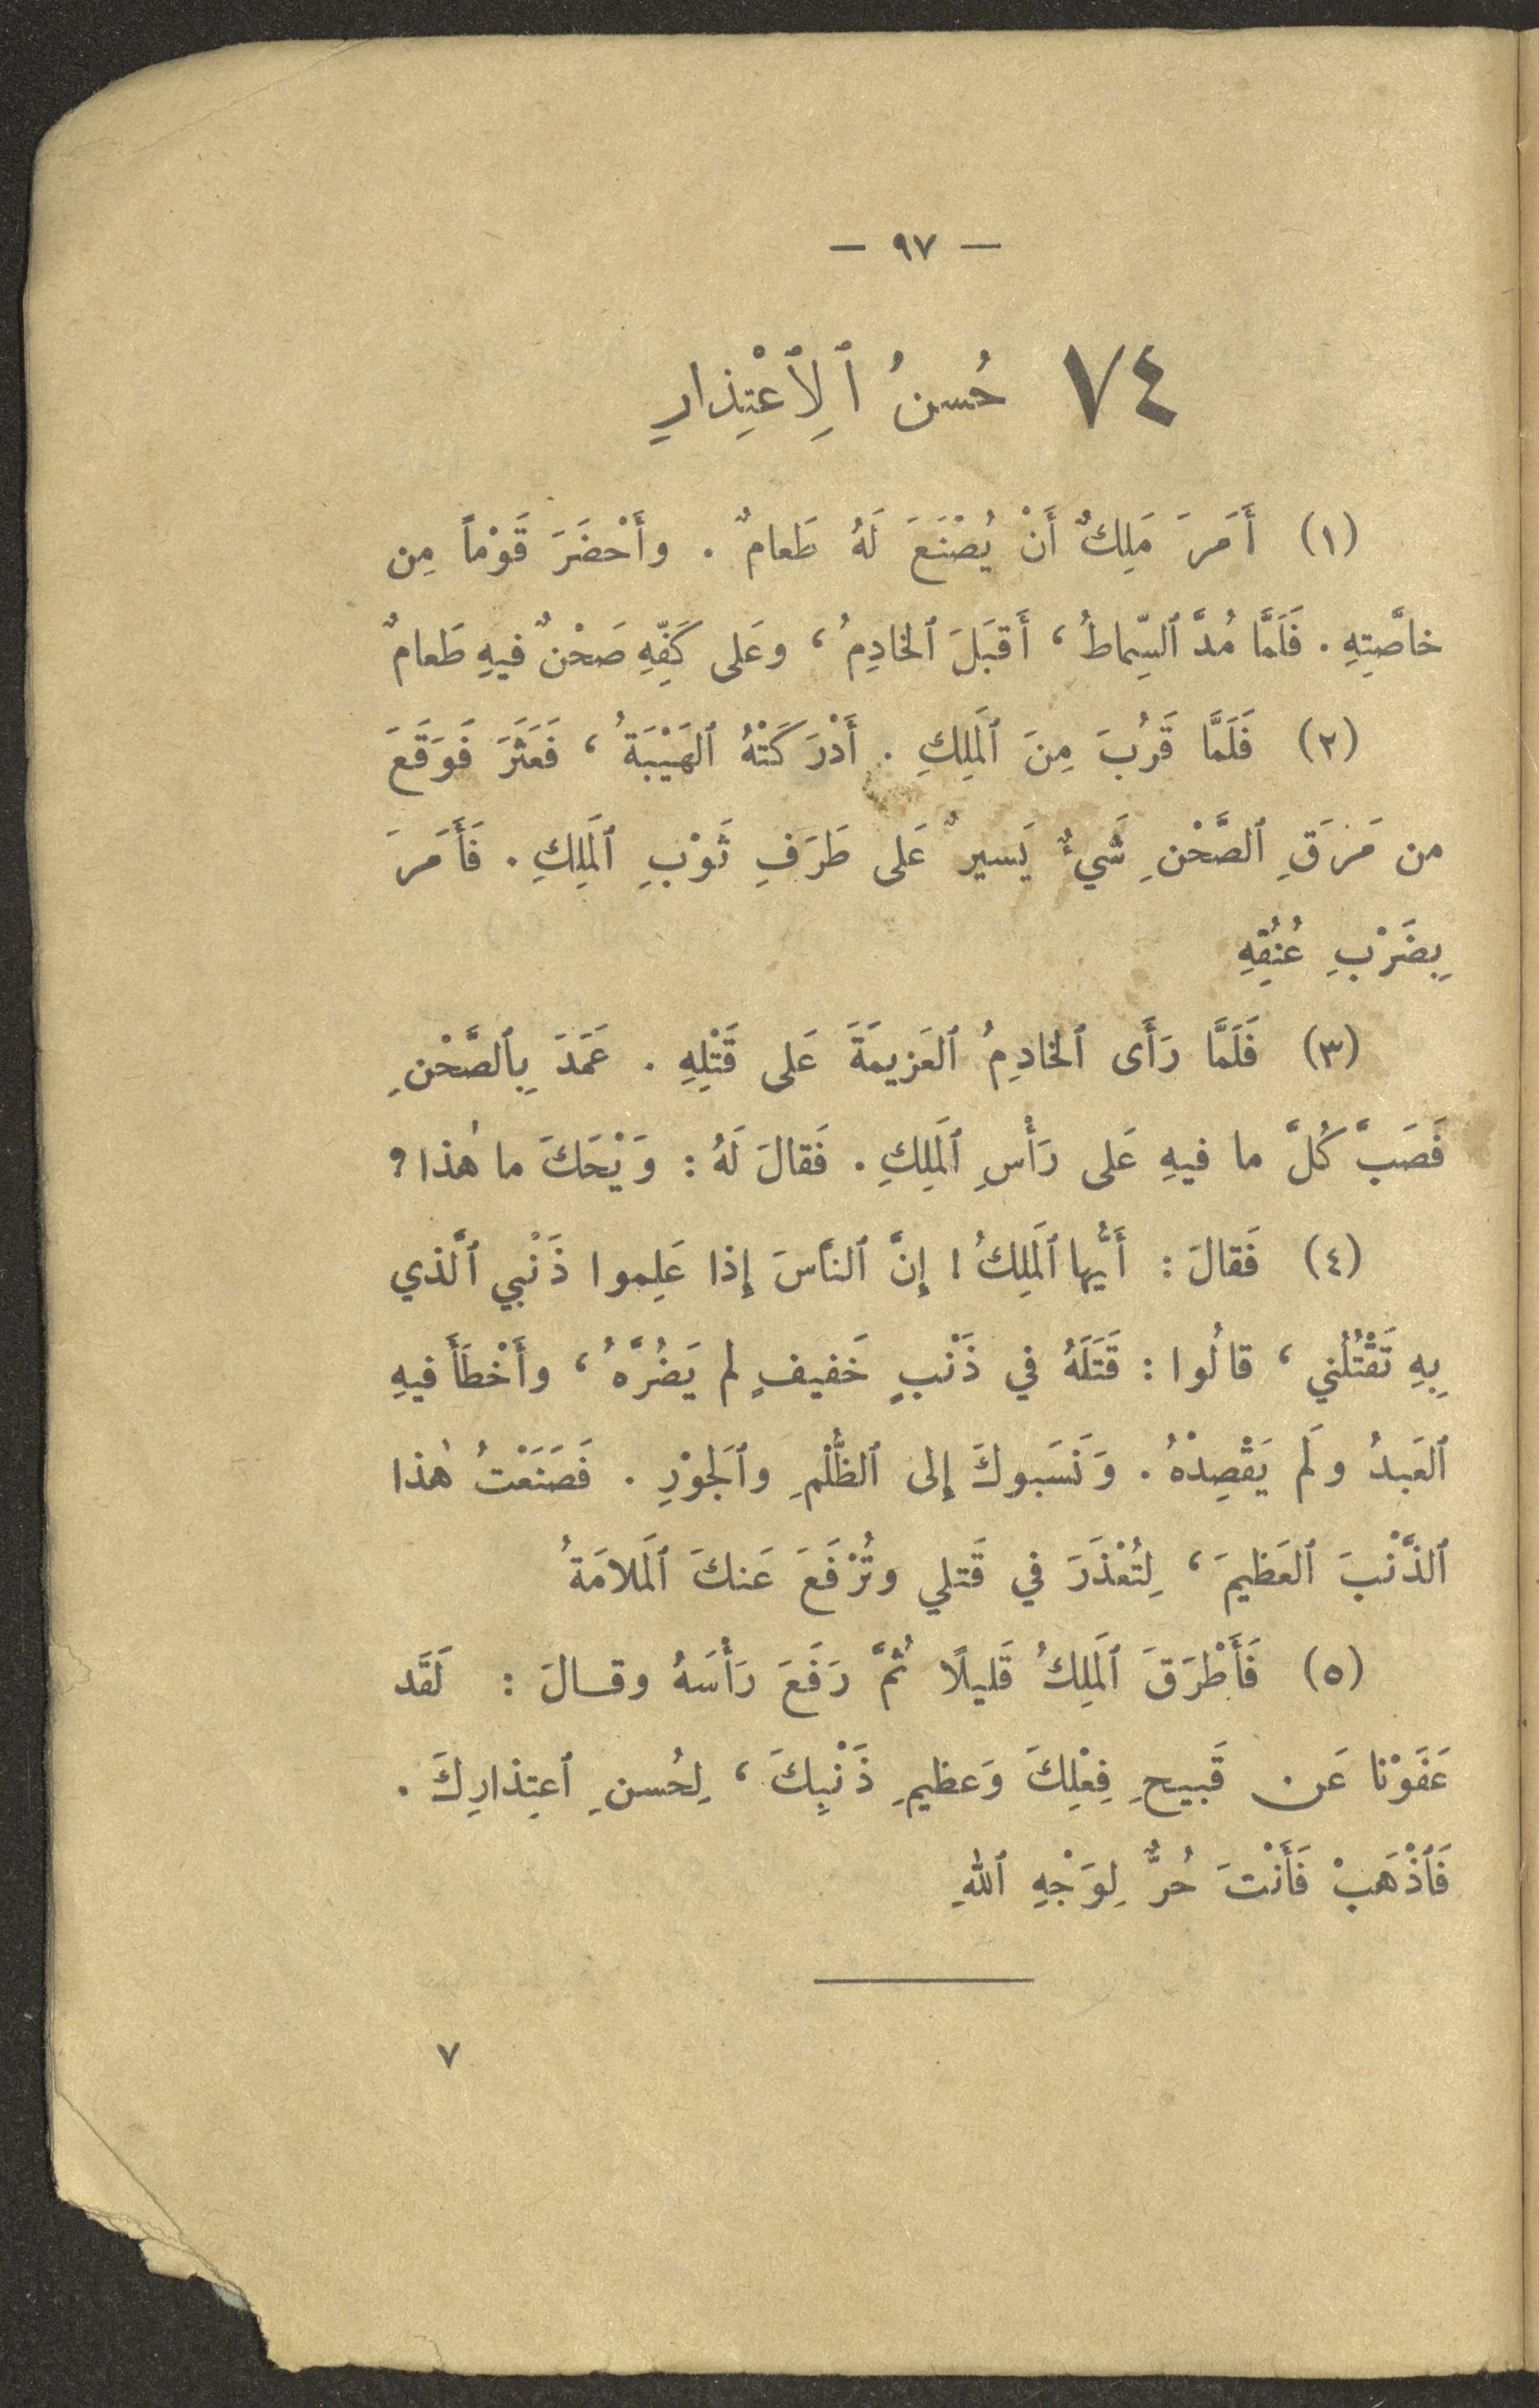 — ٩٧ —
٧٤ حُسنُ ٱلِٱعْتِذارِ
(١) أَمَرَ مَلِكٌ أَنْ يُصْنَعَ لَهُ طَعامٌ . وأَحْضَرَ قَوْماً مِن
خاصَّتِهِ . فَلَمَّا مُدَّ ٱلسِّماطُ ، أَقبَلَ ٱلخادِمُ ، وعَلى كَفِّهِ صَحْنٌ فيهِ طَعامٌ
(٢) فَلَمَّا قَرُبَ مِنَ ٱلمَلِكِ . أَدْرَكَتْهُ ٱلهَيْبَةُ ، فَعَثَرَ فَوَقَعَ
من مَرَقِ ٱلصَّحْنِ شَيءٌ يَسيرٌ عَلى طَرَفِ ثَوْبِ ٱلمَلِكِ . فَأَمَرَ
بِضَرْبِ عُنُقِهِ
(٣) فَلَمَّا رَأَى ٱلخادِمُ ٱلعَزيمَةَ عَلى قَتْلِهِ . عَمَدَ بِٱلصَّحْنِ
فَصَبَّ كُلَّ ما فيهِ عَلى رَأْسِ ٱلمَلِكِ . فَقالَ لَهُ : وَيْحَكَ ما هٰذا ؟
(٤) فَقالَ : أَيُّها ٱلمَلِكُ ! إِنَّ ٱلنَّاسَ إِذا عَلِموا ذَنْبي ٱلَّذي
بِهِ تَقْتُلُني ، قالُوا : قَتَلَهُ في ذَنْبٍ خَفيفٍ لم يَضُرَّهُ ، وأَخْطَأَ فيهِ
ٱلعَبدُ ولَم يَقْصِدْهُ . وَنَسَبوكَ إِلى ٱلظُّلْمِ وٱلجَوْرِ . فَصَنَعْتُ هٰذا
ٱلذَّنْبَ ٱلعَظيمَ ، لِتُعْذَرَ في قَتلي وتُرْفَعَ عَنكَ ٱلمَلامَةُ
(٥) فَأَطْرَقَ ٱلمَلِكُ قَليلًا ثُمَّ رَفَعَ رَأْسَهُ وقـالَ : لَقَد
عَفَوْنا عَن قَبيحِ فِعْلِكَ وَعظيمِ ذَنْبِكَ ، لِحُسنِ ٱعتِذارِكَ .
فَٱذْهَبْ فَأَنْتَ حُرٌّ لِوَجْهِ ٱللهِ
٧